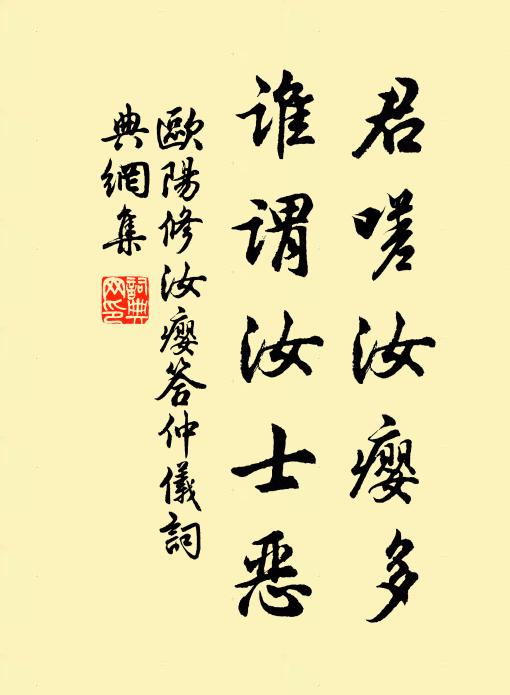 君嗟汝瘿多
谁谓汝士恶
歐陽修汝瘿答仲儀詞
典網集
詞典
网印